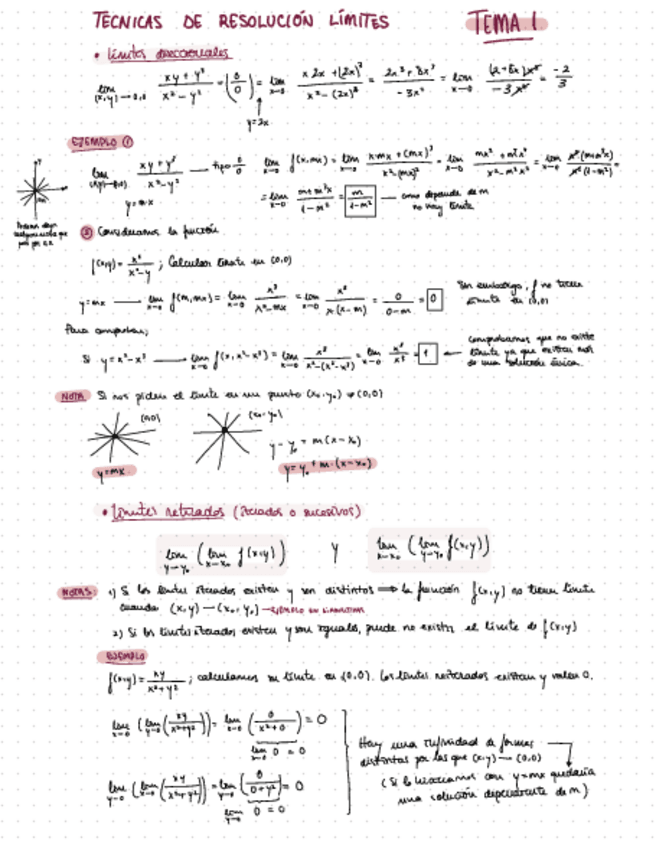 TÉCNICAS DE RESOLUCIÓN LÍMITES TEMA 1
• Límites direccionales
lím (x,y)→0,0 xy + y³ / x² - y² = (0/0) = lím x→0 x 2x + (2x)³ / x² - (2x)² = 2x² + 8x³ / -3x² = lím x→0 (2+8x)x² / -3x² = -2/3
y=2x
EJEMPLO ①
lím (x,y)→(0,0) xy + y³ / x² - y² — tipo 0/0 lím x→0 f(x,mx) = lím x→0 x·mx + (mx)³ / x² - (mx)² = lím x→0 mx² + m³x³ / x² - m²x² = lím x→0 x²(m+m³x) / x²(1-m²) =
y=mx
= lím x→0 m+m³x / 1-m² = m / 1-m² — como depende de m
no hay límite
② Consideramos la función
f(x,y) = x³ / x²-y ; Calcular límite en (0,0)
y=mx — lím x→0 f(x,mx) = lím x→0 x³ / x²-mx = lím x→0 x³ / x(x-m) = 0 / 0-m = 0
Sin embargo, f no tiene
límite en (0,0)
Para comprobar;
Si y=x²-x³ → lím x→0 f(x,x²-x³) = lím x→0 x³ / x²-(x²-x³) = lím x→0 x³/x³ = 1
comprobamos que no existe
límite ya que existen más
de una solución única.
NOTA Si nos piden el límite en un punto (x₀,y₀) ≠ (0,0)
(0,0) (x₀,y₀)
y - y₀ = m(x-x₀)
y=mx y = y₀ + m·(x-x₀)
• Límites reiterados (iterados o sucesivos)
lím y→y₀ (lím x→x₀ f(x,y)) Y lím x→x₀ (lím y→y₀ f(x,y))
NOTAS: 1) Si los límites iterados existen y son distintos ⟹ la función f(x,y) no tiene límite
cuando (x,y)→(x₀,y₀)
2) Si los límites iterados existen y son iguales, puede no existir el límite de f(x,y)
EJEMPLO
f(x,y) = xy / x²+y² ; calculamos su límite en (0,0). Los límites reiterados existen y valen 0.
lím x→0 (lím y→0 (xy / x²+y²)) = lím x→0 (0 / x²+0) = 0
lím x→0 0 = 0
lím y→0 (lím x→0 (xy / x²+y²)) = lím y→0 (0 / 0+y²) = 0
lím y→0 0 = 0
Hay una infinidad de formas
distintas por las que (x,y)→(0,0)
(Si lo hacíamos con y=mx quedaría
una solución dependiente de m)